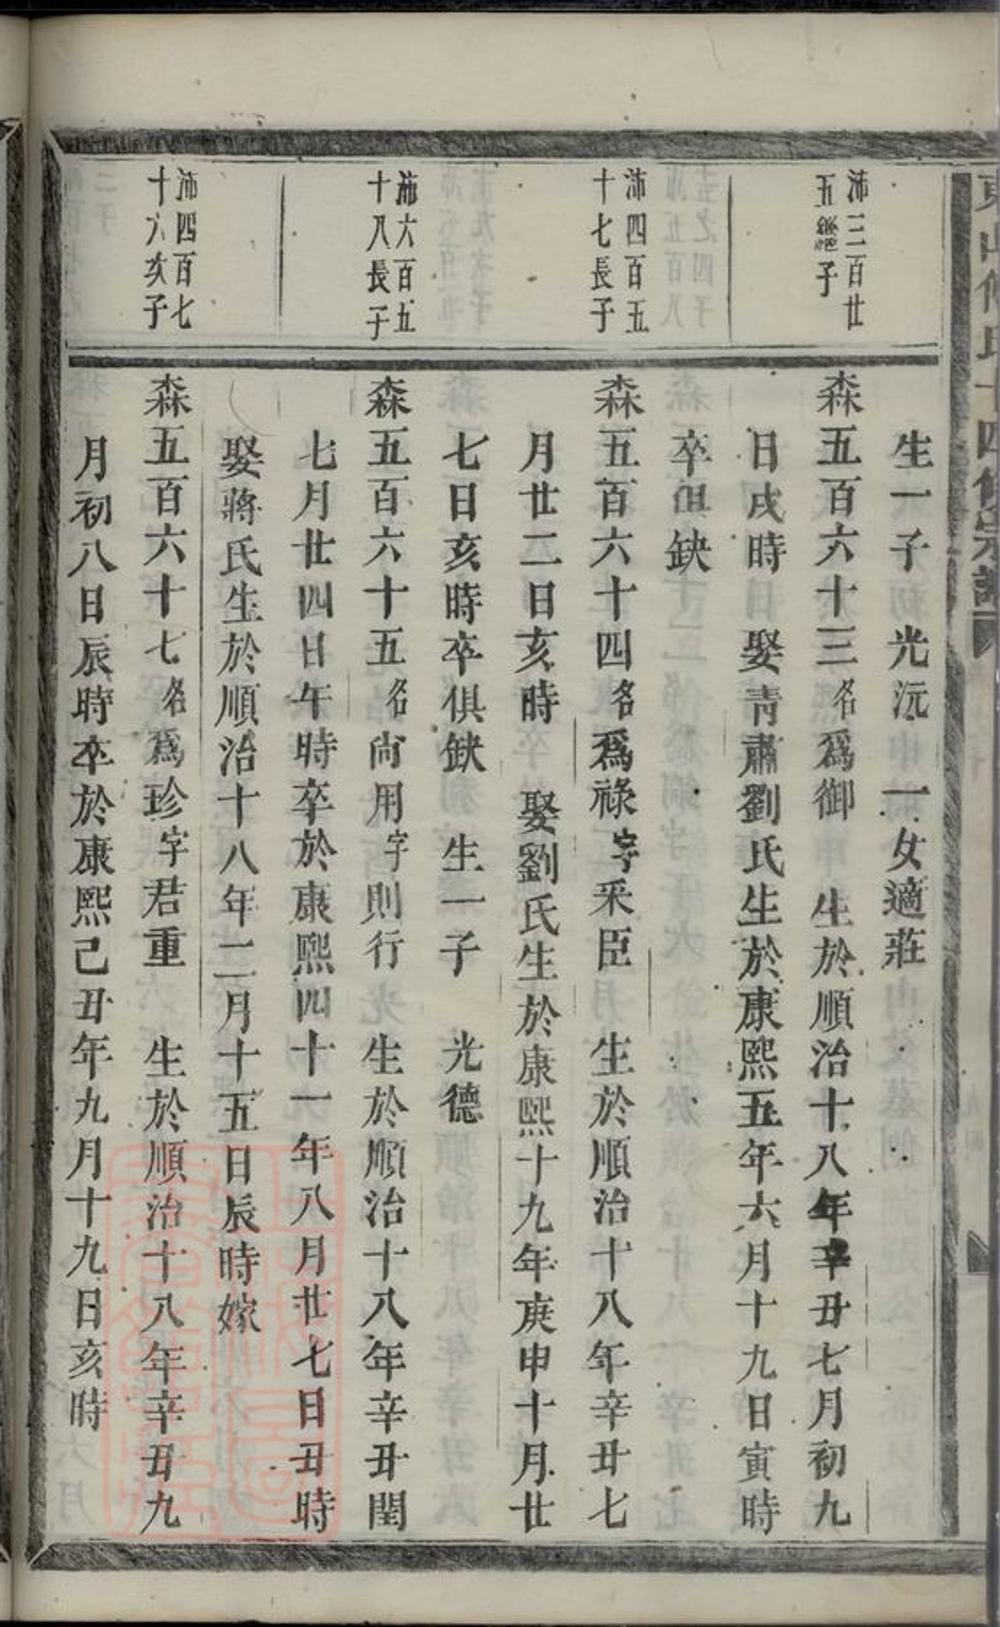 生一子 光沅 一女適莊
沛三百廿
五繼子
森五百六十三名爲御 生於順治十八年辛丑七月初九
日戌時 娶青肅劉氏生於康熙五年六月十九日寅時
卒俱缺
沛四百五
十七長子
森五百六十四名爲祿字采臣 生於順治十八年辛丑七
月廿二日亥時 娶劉氏生於康熙十九年庚申十月廿
七日亥時卒俱缺 生一子 光德
沛六百五
十八長子
森五百六十五名尙用字則行 生於順治十八年辛丑閏
七月廿四日午時卒於康熙四十一年八月廿七日丑時
娶蔣氏生於順治十八年二月十五日辰時嫁
沛四百七
十六次子
森五百六十七名爲珍字君重 生於順治十八年辛丑九
月初八日辰時卒於康熙己丑年九月十九日亥時